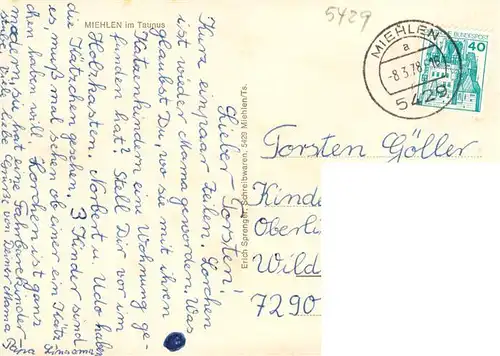 5429
MIEHLEN im Taunus
MIEHLEN
a
-8.3.78-16
5429
BUNDESPOST
40
Lieber Torsten!
Kurz ein paar Zeilen. Lorchen
ist wieder Mama geworden. Was
glaubst Du, wo sie mit ihren
Katzenkindern eine Wohnung ge-
funden hat? Stell Dir vor im
Holzkasten. Norbert u. Udo haben
die Kätzchen gesehn. 3 Kinder sind
es, muß mal sehen ob einer ein Kätz-
chen haben will. Lorchen ist ganz
modern, sie hat eine Fahrbare Kinder-
viele liebe Grüße von Deiner Mama
Papa
Erich Sprenger, Schreibwaren, 5429 Miehlen/Ts.
Torsten Göller
Kinde
Oberlin
Wild
7290